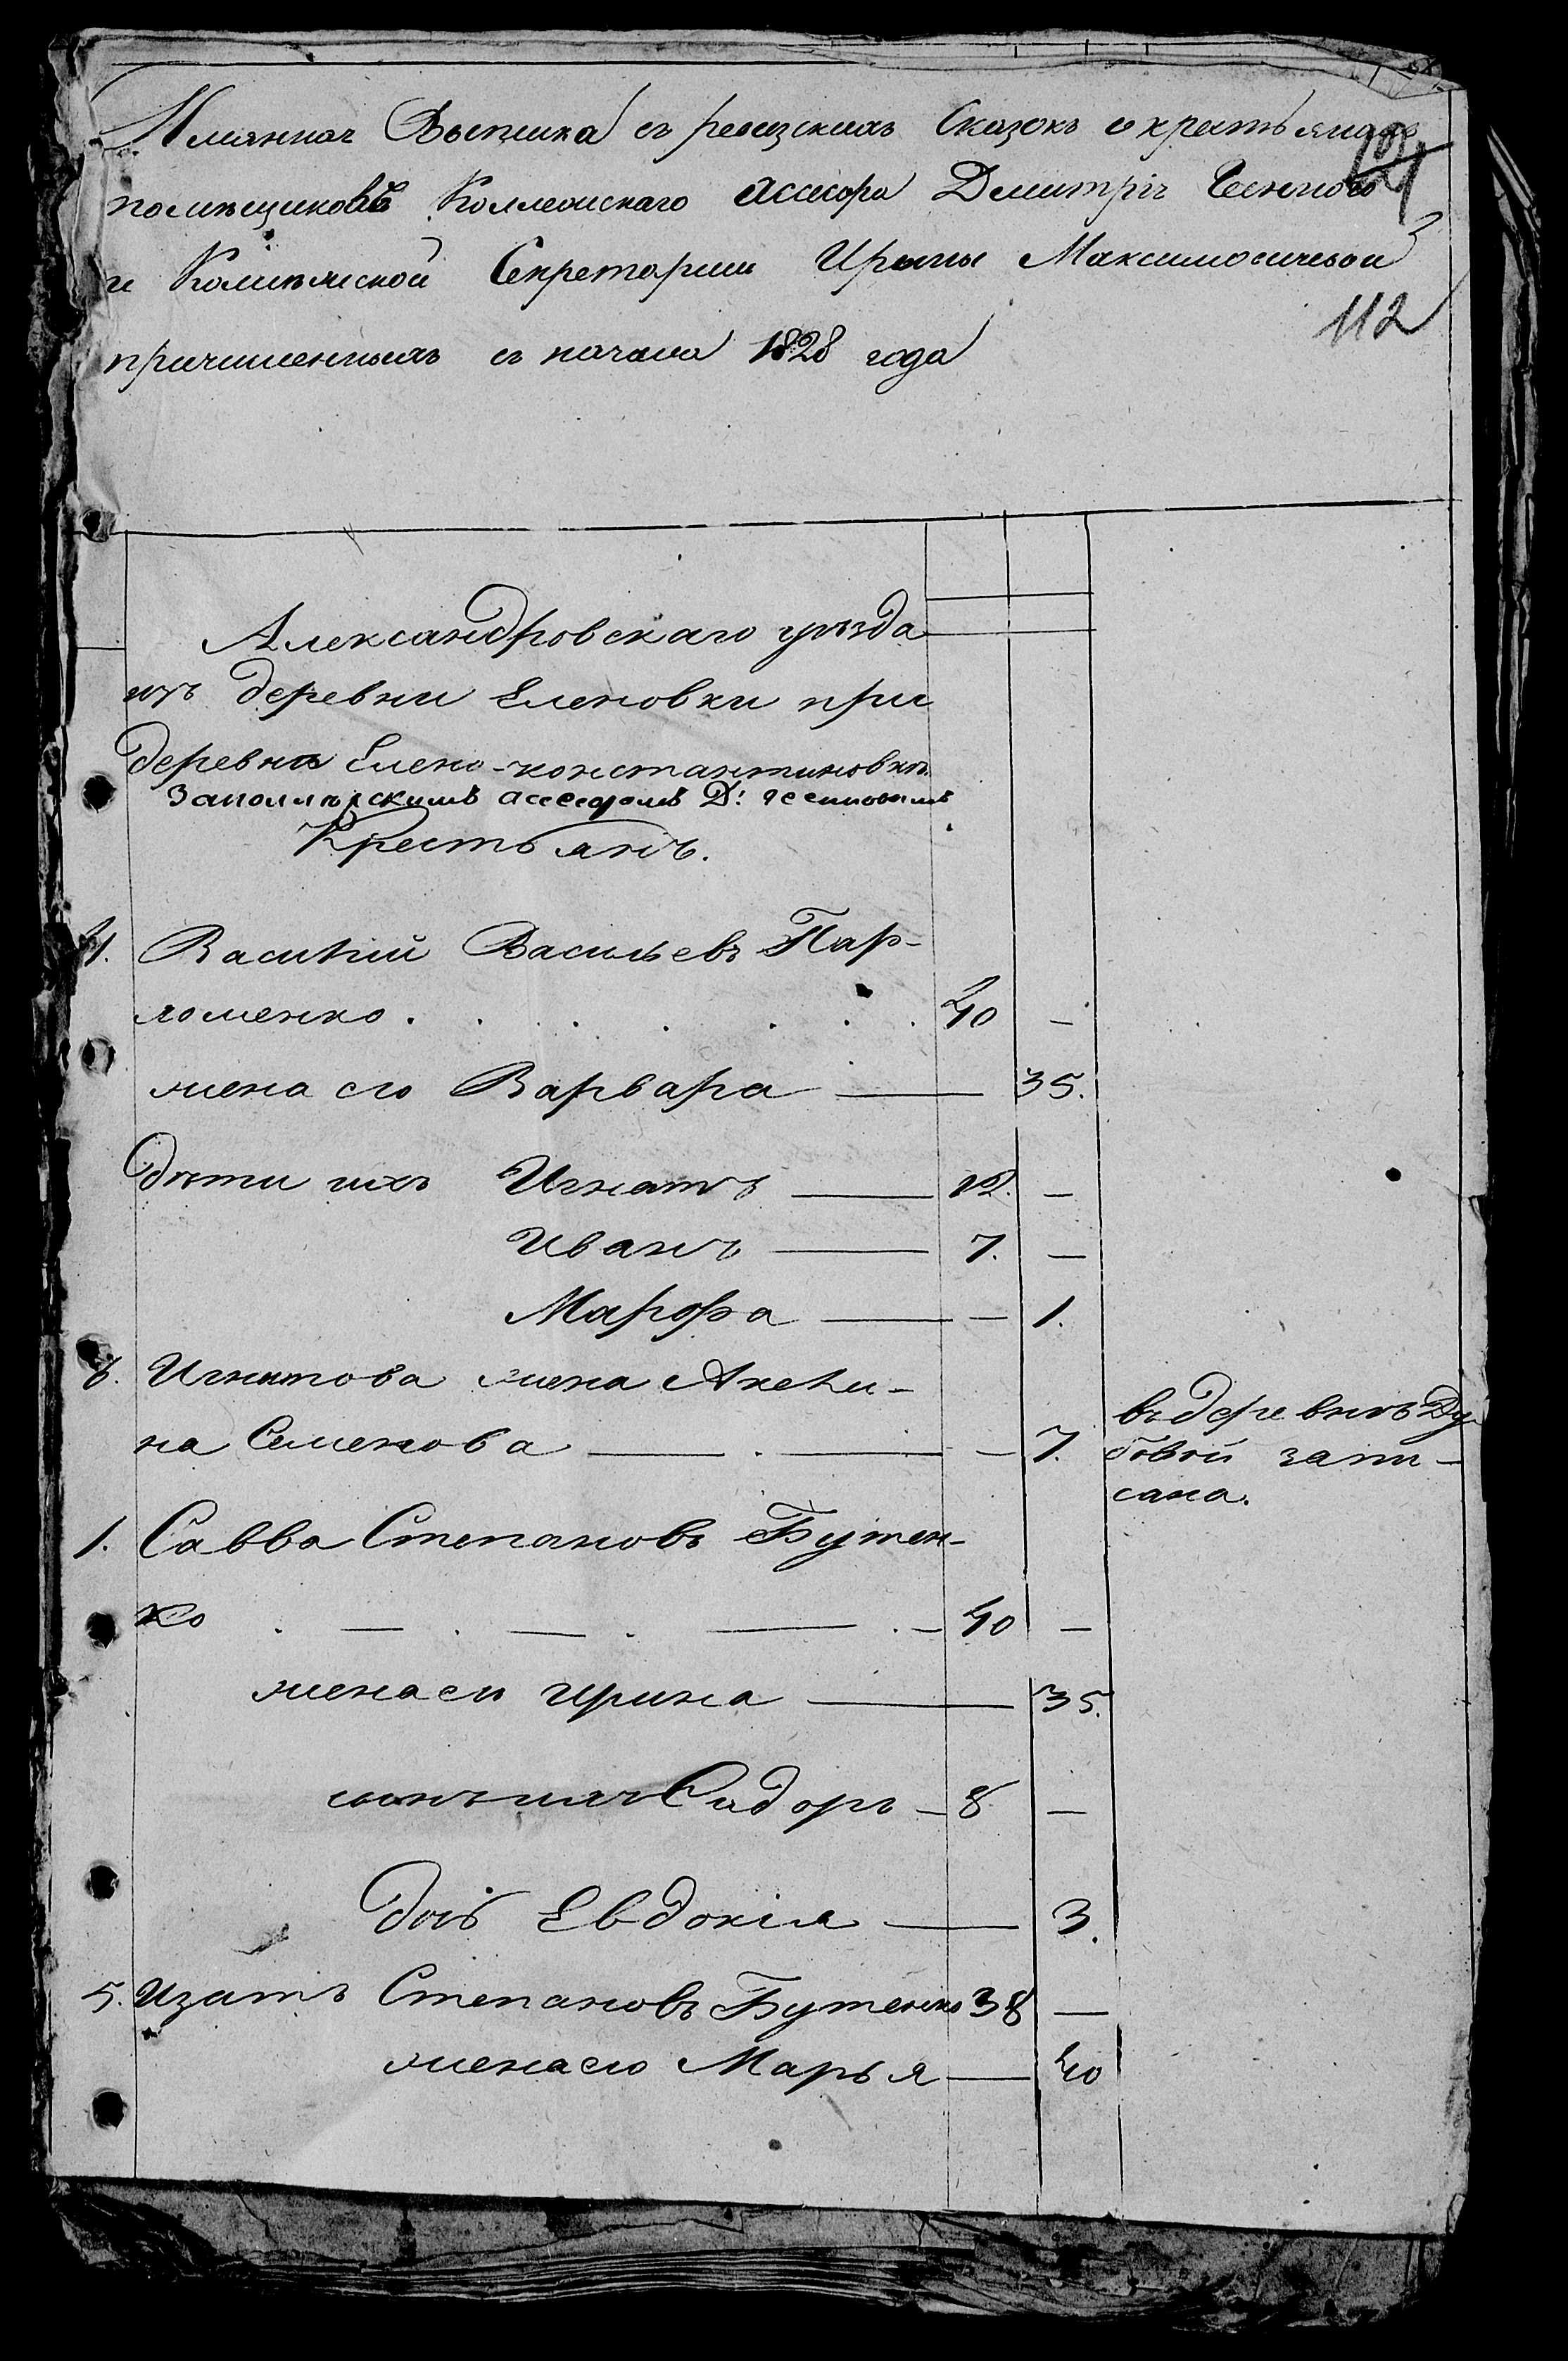 Имянная Выписка съ ревизскихъ Сказокъ о крестьянахъ
помѣщиковъ Коллежскаго Ассесора Дмитрія
и Секретарши Ирыны Максимовичевой
112
причисленныхъ съ начала 1828 года
Александровскаго уѣзда
изъ деревни Еленовки при
деревнѣ Елено-константиновкѣ
ассесоромъ Д:
Крестьянъ.
Василий Васильевъ Пар-
ломенко . . . . . . 40 —
жена его Варвара — 35.
Дѣти ихъ Игнатъ — 12. —
Иванъ — 7. —
Марфа — — 1.
6. Игнатова жена Акели-
на Семенова — . — — 7.
въ деревнѣ Ду-
бовой запи-
сана.
1. Савва Степановъ Бутен-
ко . — . — . — . — 40 —
жена его Ирина — 35.
сынъ ихъ Сидоръ — 8 —
дочь Евдокія — 3.
5. Степановъ Бутенко 38 —
жена его Марья — 40